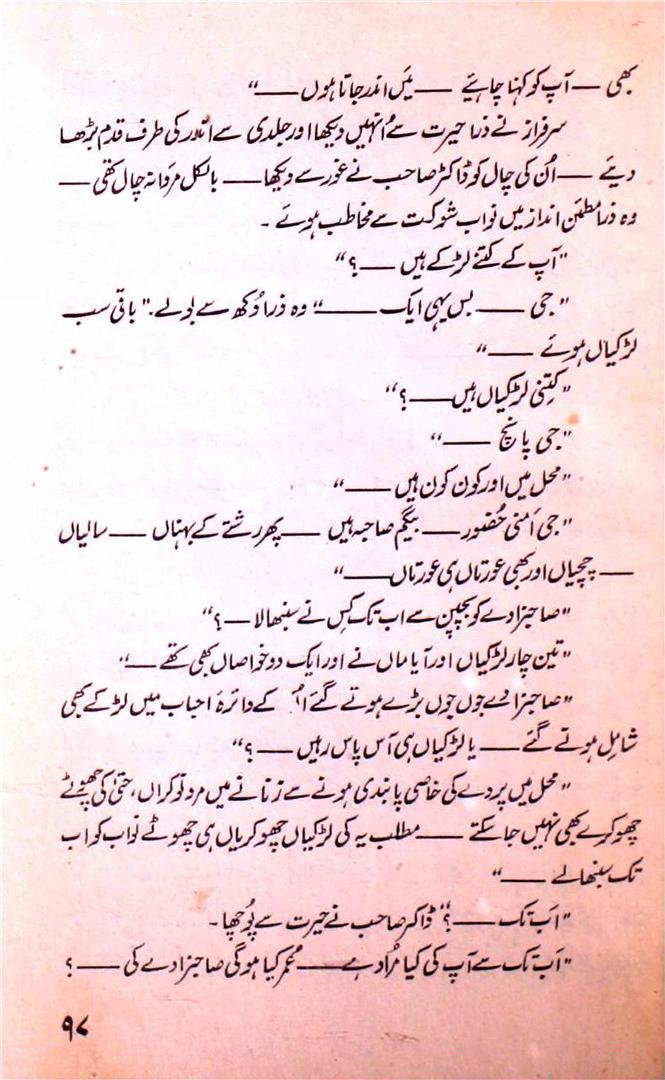 بھی — آپ کو کہنا چاہئیے — میَں اندر جاتا ہوں —“
سرفراز نے ذرا حیرت سے اُنہیں دیکھا اور جلدی سے اندر کی طرف قدم بڑھا
دیئے — اُن کی چال کو ڈاکٹر صاحب نے غور سے دیکھا — بالکل مردانہ چال تھی —
وہ ذرا مطمئن انداز میں نواب شوکت سے مخاطب ہوئے ۔
”آپ کے کتنے لڑکے ہیں —؟“
”جی — بس یہی ایک —“ وہ ذرا دُکھ سے بولے۔ ”باقی سب
لڑکیاں ہوئے —“
”کِتنی لڑکیاں ہیں —؟“
”جی پانچ —“
”محل میں اور کون کون ہیں —“
”جی اَمنی حُضور — بیگم صاحبہ ہیں — پھر رشتے کے بہناں — سالیاں
— چچیاں اور بھی عورتاں ہی عورتاں —“
”صاحبزادے کو بچپن سے اب تک کِس نے سنبھالا —؟“
”تین چار لڑکیاں اور آیا ماں نے اور ایک دو خواصاں بھی تھے —“
”صاحبزادے جوں جوں بڑے ہوتے گئے اُ کے دائرہَ احباب میں لڑکے بھی
شامِل ہوتے گئے — یا لڑکیاں ہی آس پاس رہیں —؟“
”محل میں پردے کی خاصی پابندی ہونے سے زنانے میں مرد نوکراں، حتیٰ کی چھوٹے
چھوکرے بھی نہیں جا سکتے — مطلب یہ کی لڑکیاں چھوکریاں ہی چھوٹے نواب کو اب
تک سنبھالے —“
”اَب تک —؟“ ڈاکٹر صاحب نے حیرت سے پوُچھا۔
”اَب تک سے آپ کی کیا مُراد ہے — عُمر کیا ہو گی صاحبزادے کی —؟
۹۷